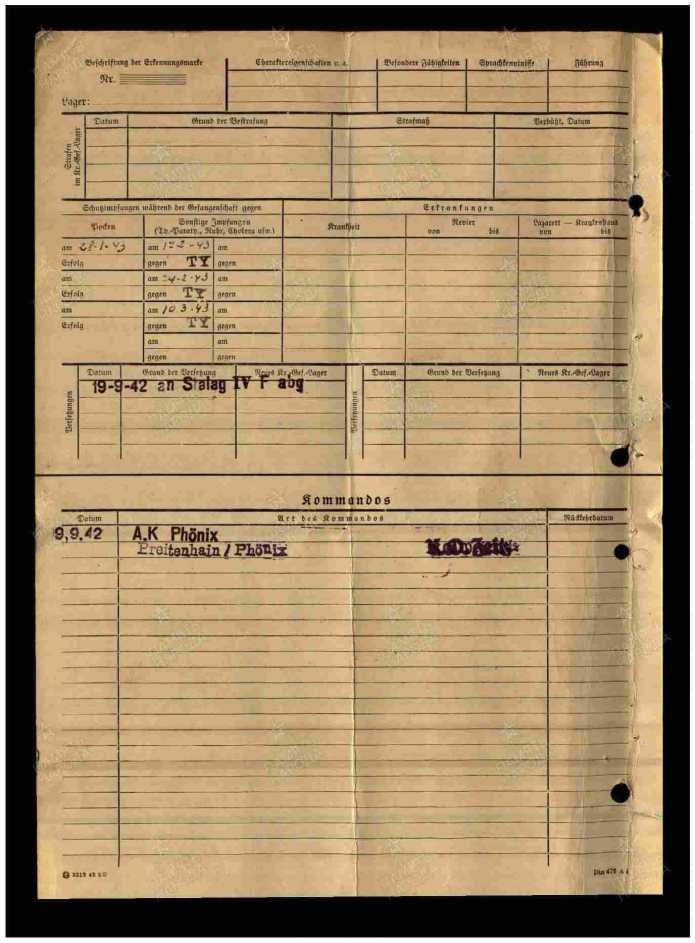 Beschriftung der Erkennungsmarke
Nr.
Lager:
Charaktereigenschaften u. ä.
Besondere Fähigkeiten
Sprachkenntnisse
Führung
Strafen im Kr.-Gef.-Lager
Datum
Grund der Bestrafung
Strafmaß
Verbüßt, Datum
Schutzimpfungen während der Gefangenschaft gegen
Erkrankungen
Pocken
Sonstige Impfungen
(Ty.-Paraty., Ruhr, Cholera usw.)
Krankheit
Revier
von bis
Lazarett — Krankenhaus
von bis
am 28-1-43 am -2-43 am
Erfolg gegen TY gegen
am am -2-43 am
Erfolg gegen TY gegen
am am 10 3-43 am
Erfolg gegen TY gegen
am am
gegen gegen
Versetzungen
Datum Grund der Versetzung Neues Kr.-Gef.-Lager
Versetzungen
Datum Grund der Versetzung Neues Kr.-Gef.-Lager
19-9-42 an Stalag IV F abg
Kommandos
Datum Art des Kommandos Rückkehrdatum
9.9.42 A.K Phönix
Breitenhain / Phönix
Din 476 A
ПАМЯТЬ НАРОДА